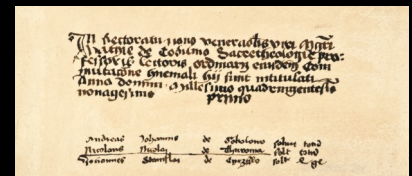 In Rectoratu nono venerabilis viri Mgri
Mathie de Cobilino Sacretheologie pro-
fessoris lectoris ordinarii eiusdem Com
mutacione hiemali hii sunt intitulati
Anno domini Millesimo quadringentesi
nonagesimo primo
Andreas Johannis de solvit totum
Nicolaus Nicolai de Thuronia solt totum
Johannes Stanislai de solt ge